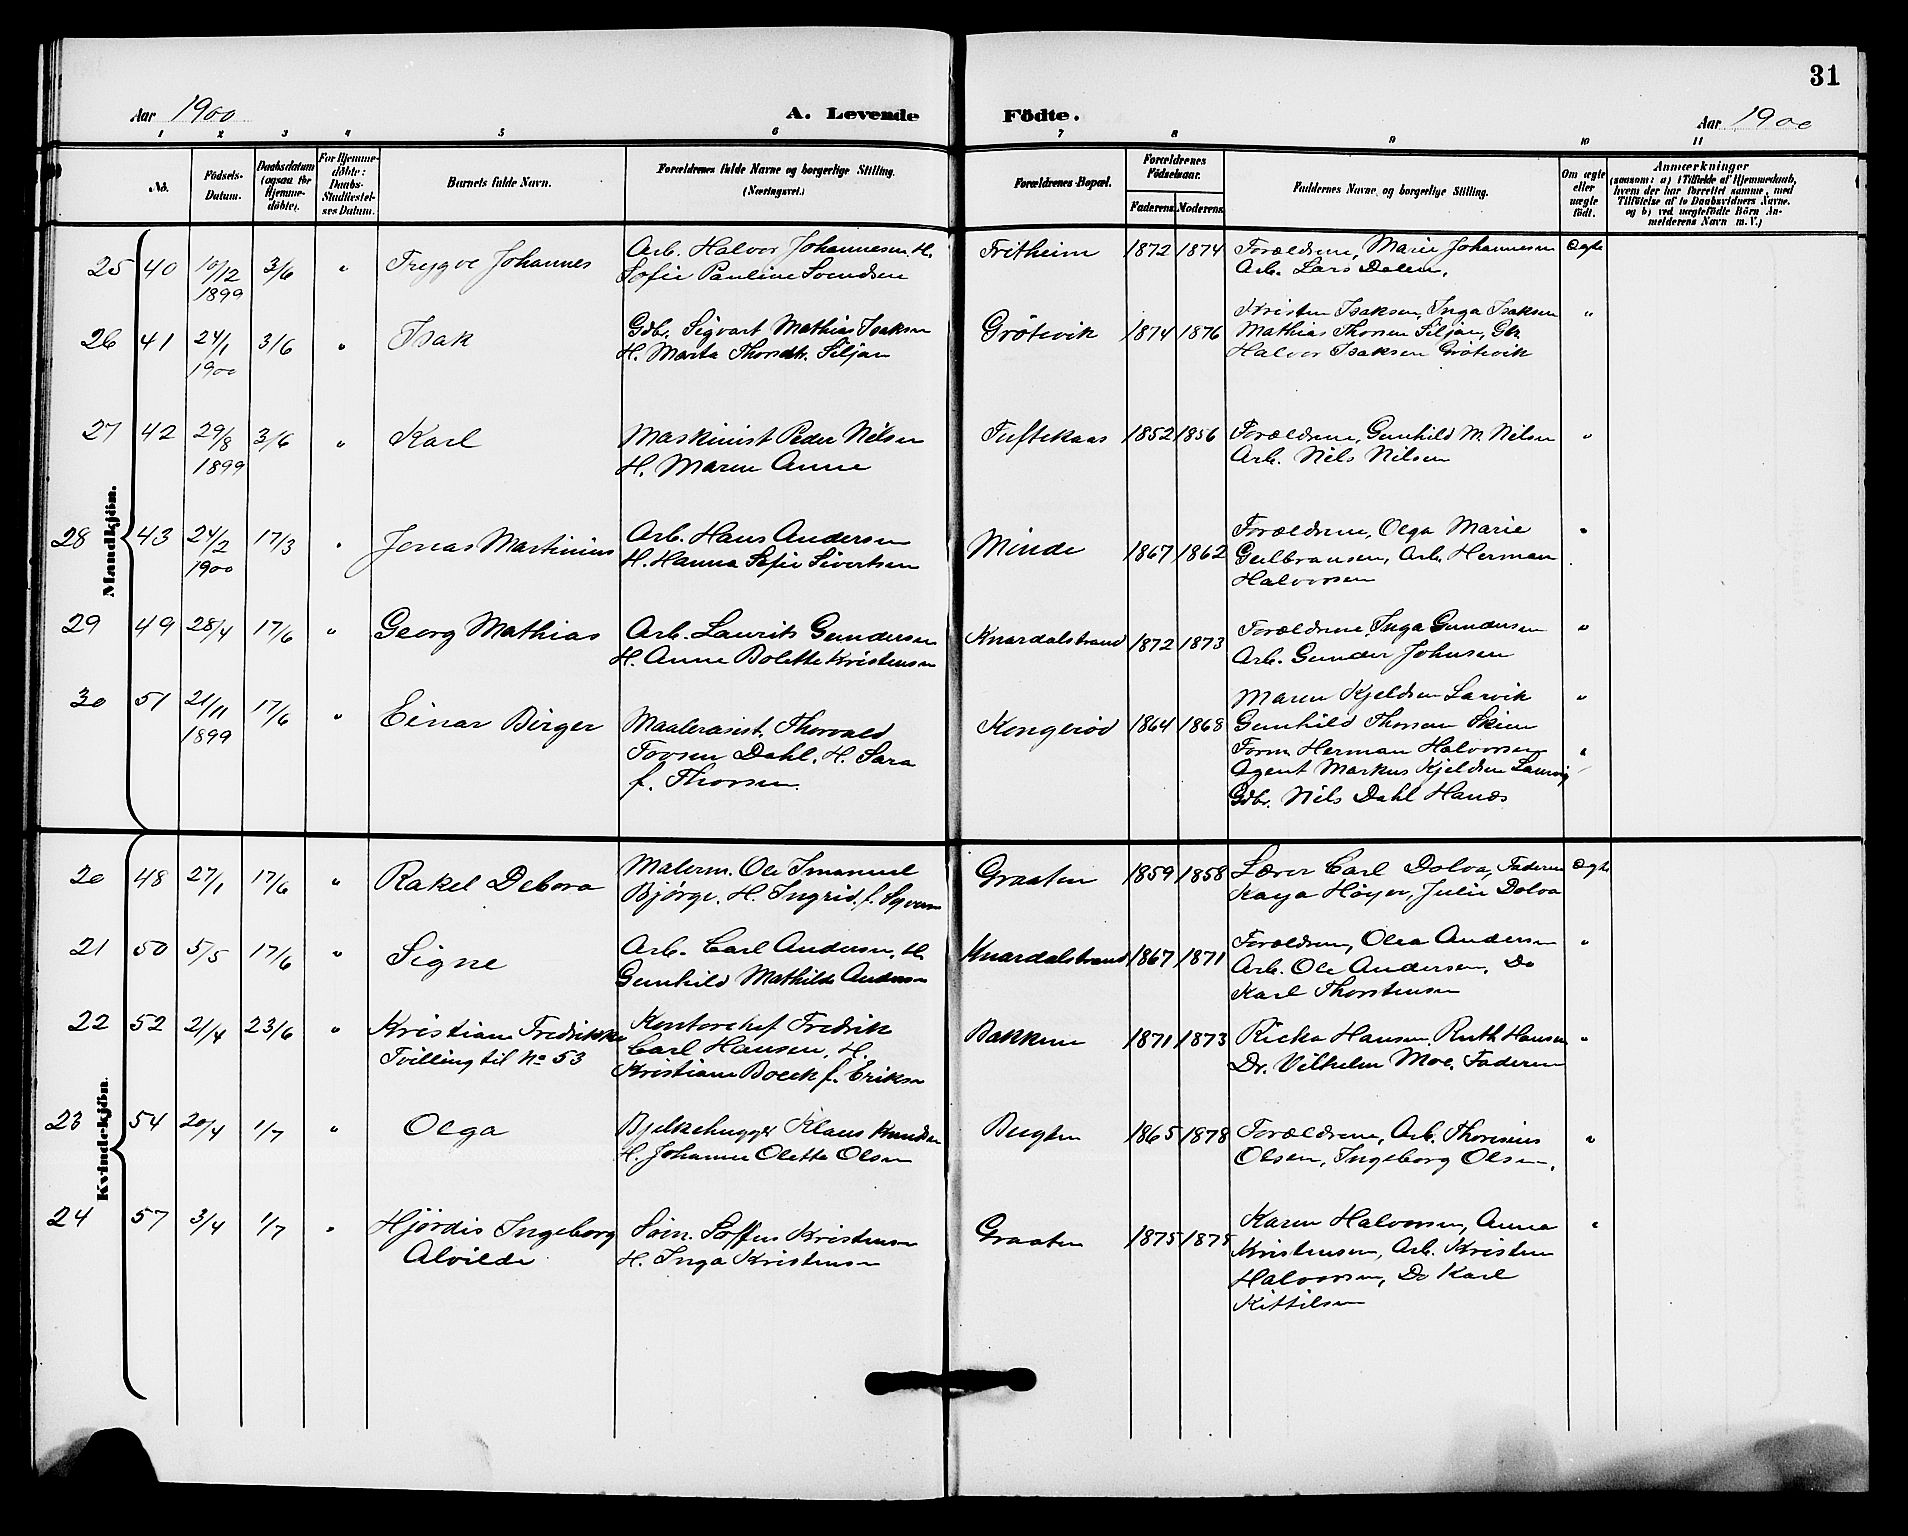 31
Aar 1900 A. Levende Födte. Aar 1900
1 2 3 4 5 6 7 8 9 10 11
No. Födsels-Datum. Daabsdatum (ogsaa for Hjemme-döbte). For Hjemme-döbte: Daabs-Stadfæstel-ses Datum. Barnets fulde Navn. Forældrenes fulde Navne og borgerlige Stilling. (Næringsvei.) Forældrenes Bopæl. Forældrenes Födselsaar. Faderens Moderens Faddernes Navne og borgerlige Stilling. Om ægte eller uægte födt. Anmærkninger (saasom: a) i Tilfælde af Hjemmedaab, hvem der har forrettet samme, med Tilföielse af to Daabsvidners Navne, og b) ved uægtefödte Börn An-melderens Navn m. V.)
Mandkjön.
25 40 10/12 3/6 " Trygve Johannes Arb. Halvor Johannesen H. Fritheim 1872 1874 Forældrene, Marie Johannesen Ægte
1899 Sofie Pauline Svendsen Arb. Lars Dalen.
26 41 24/1 3/6 " Isak Gdbr. Sigvart Mathias Isaksen Grötevik 1874 1876 Kristen Isaksen, Inga Isaksen "
1900 H. Marta Thorsdtr. Siljan Mathias Thorsen Siljan, Gb.
Halvor Isaksen Grötevik
27 42 29/8 3/6 " Karl Maskinist Peder Nilsen Tuftekaas 1852 1856 Forældrene, Gunhild M. Nilsen "
1899 H. Maren Anne Arb. Nils Nilsen
28 43 24/2 17/3 " Jonas Martinius Arb. Hans Andersen Minde 1867 1862 Forældrene, Olga Marie "
1900 H. Hanna Sofie Sivertsen Gulbransen, Arb. Herman
Halvorsen
29 49 28/4 17/6 " Georg Mathias Arb. Laurits Gundersen Knardalstrand 1872 1873 Forældrene, Inga Gundersen "
H. Anne Bolette Kristensen Arb. Gunder Johnsen
30 51 21/11 17/6 " Einar Birger Maalerasist. Thorvald Kongerød 1864 1868 Maren Kjeldsen Larvik "
1899 Tovsen Dahl, H. Sara Gunhild Thorsen Skien
f. Thorsen. Form. Herman Halvorsen "
Agent Markus Kjeldsen Laurvig
Gdbr. Nils Dahl Hanæs
Kvindekjön.
20 48 27/1 17/6 " Rakel Debora Malerm. Ole Imanuel Graaten 1859 1858 Lærer Carl Dolva, Faderen Ægte
Bjørge, H. Ingrid, f. Syvers Kaya Høyer, Julie Dolva
21 50 5/5 17/6 " Signe Arb. Carl Andersen, H. Knardalstrand 1867 1871 Forældrene, Olea Andersen "
Gunhild Mathilde Andersen Arb. Ole Andersen, Do
Karl Thorstensen
22 52 2/4 23/6 " Kristiane Fredrikke Kontorchef Fredrik Bakken 1871 1873 Ricka Hansen, Ruth Hansen "
Tvilling til No 53 Carl Hansen, H. Dr. Vilhelm Moe, Faderen
Kristiane Boeck f. Eriksen
23 54 20/4 1/7 " Olga Bjelkehugger Klaus Knudsen Bugten 1865 1878 Forældrene, Arb. Thorsinius "
H. Johanne Olette Olsen Olsen, Ingeborg Olsen,
24 57 3/4 1/7 " Hjördis Ingeborg Söm. Soffus Kristensen Graaten 1875 1875 Karen Halvorsen, Anna "
Alvilde H. Inga Kristensen Kristensen, Arb. Kristen
Halvorsen, Do Karl
Kittilsen